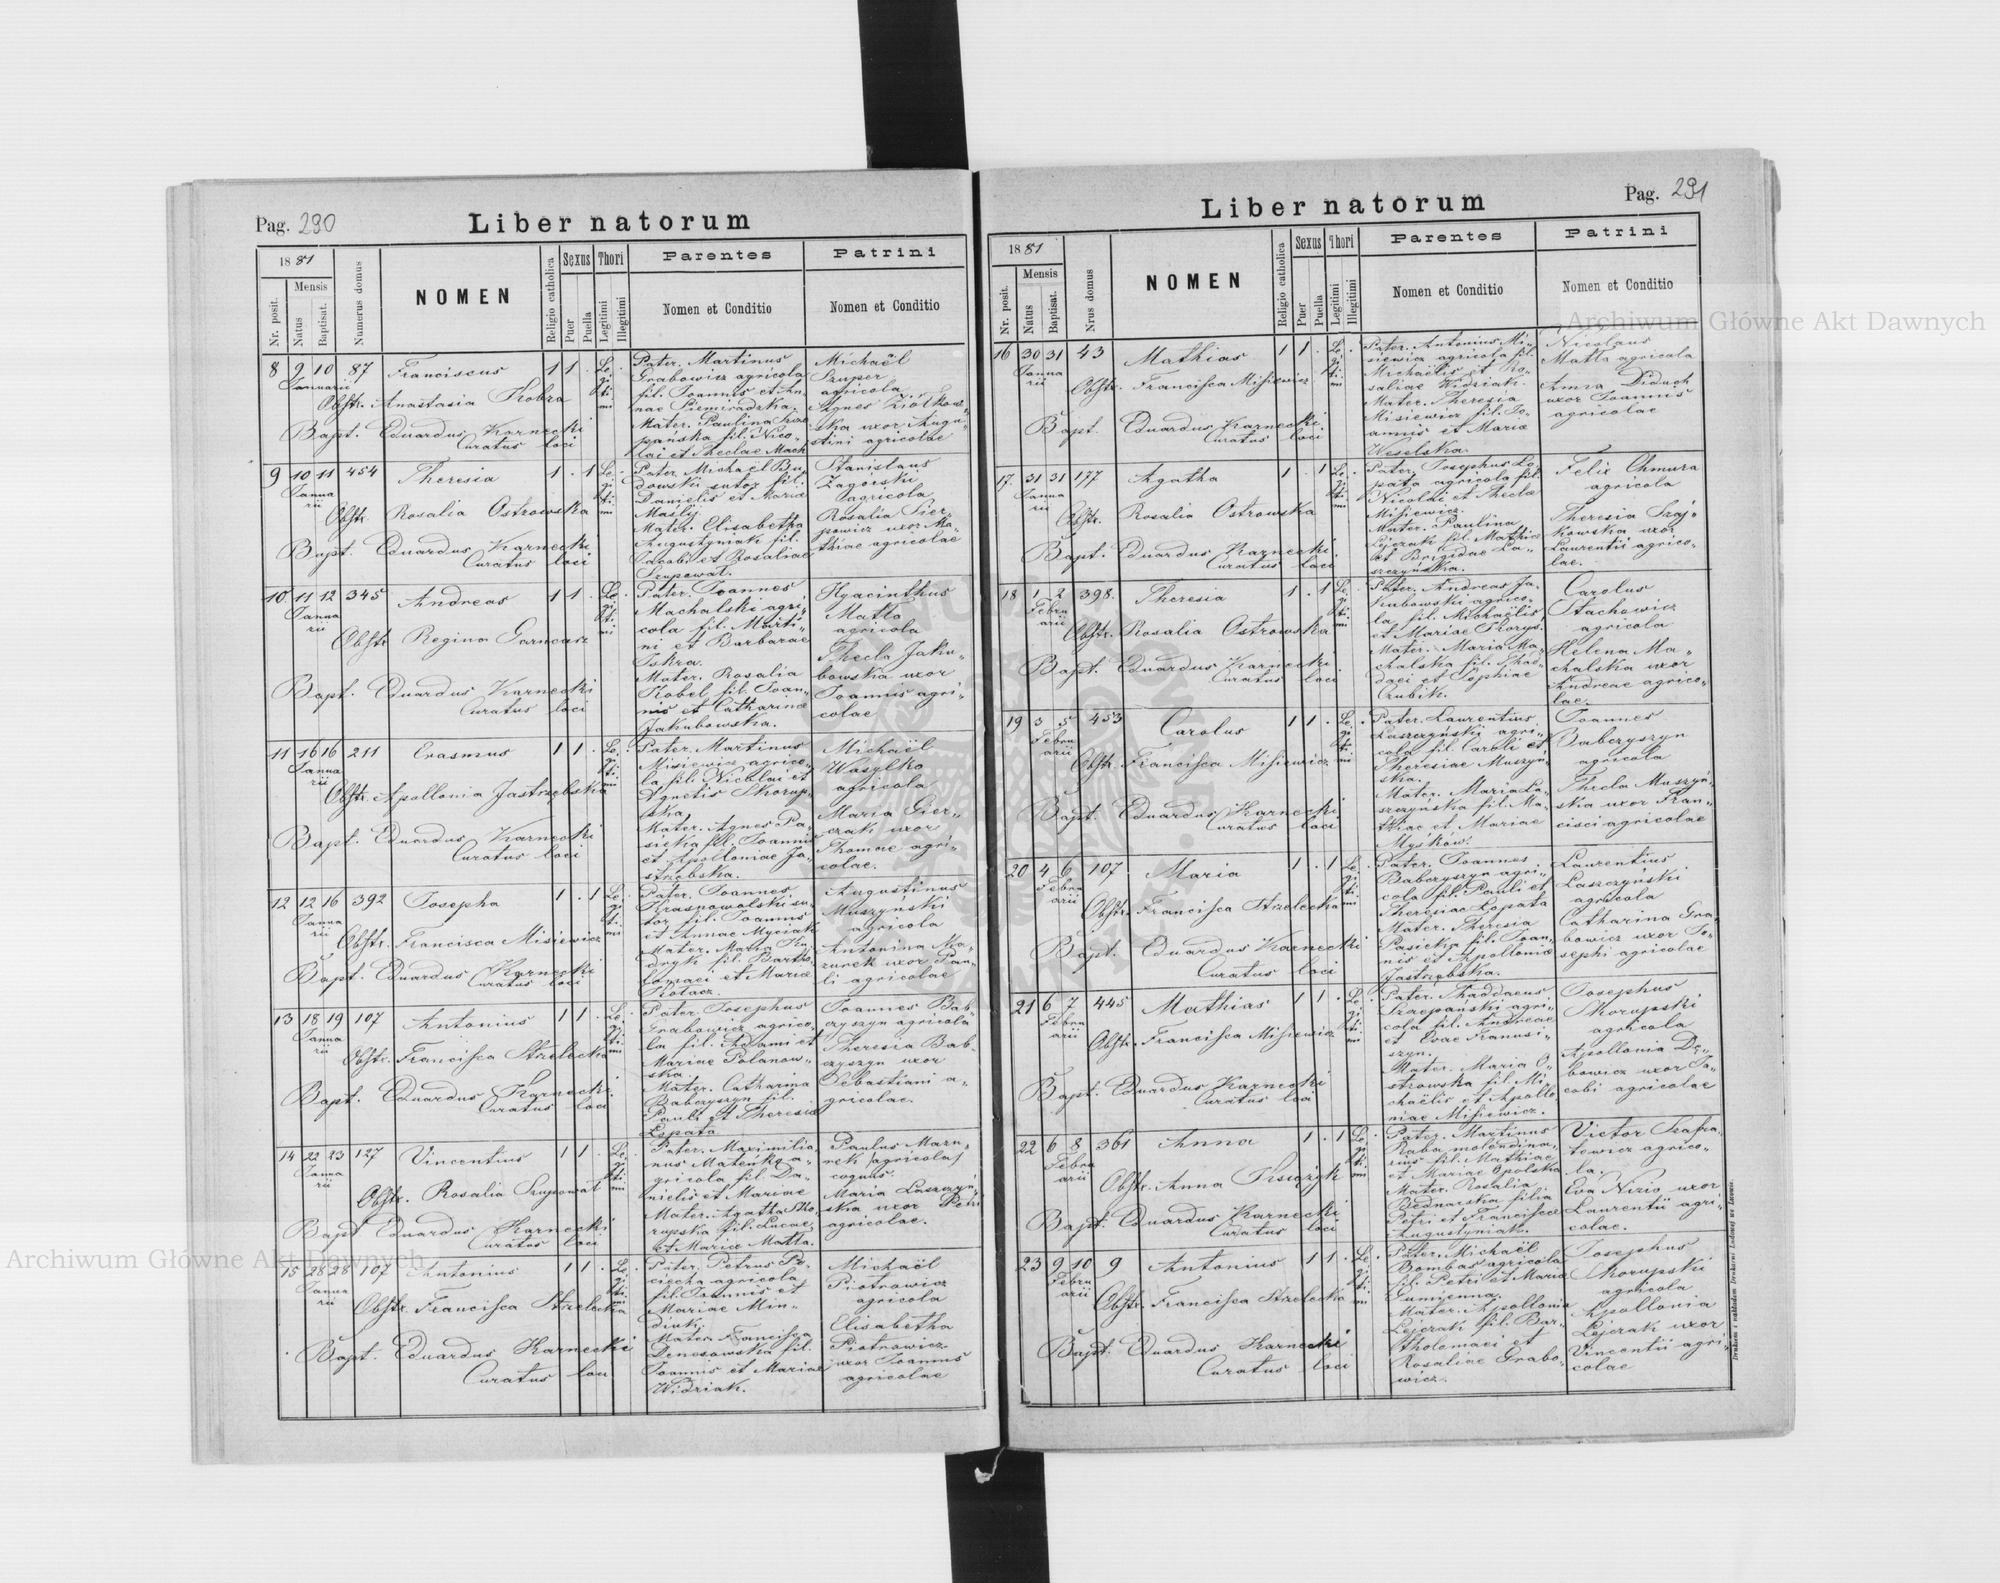 Pag. 290
Liber natorum
1881
Nr. posit.
Mensis
Natus
Baptisat.
Numerus domus
NOMEN
Religio catholica
Sexus
Puer
Puella
Thori
Legitimi
Illegitimi
Parentes
Nomen et Conditio
Patrini
Nomen et Conditio
8 9 10 87 Franciscus 1 1 .
Januarii
Obstr. Anastasia Kobza
Bapt. Eduardus Karnecki
Curatus loci
Legitimi
Pater. Martinus
Grabowicz agricola
fil. Joannis et An-
nae Siemiradzka.
Mater. Paulina
fil. Nico-
lai et Theclae Mach
Michaël
Szuper
agricola
Agnes Ziółkow-
ska uxor Augu-
stini agricolae
9 10 11 454 Theresia 1 . 1
Januarii
Obstr. Rosalia Ostrowska
Bapt. Eduardus Karnecki
Curatus loci
Legitimi
Pater. Michaël Bu-
dowski sutor fil.
Danielis et Mariae
Maslij
Mater. Elisabetha
Augustyniak fil.
Jacobi et Rosaliae
Szupowat.
Stanislaus
Zagórski
agricola
Rosalia Pier-
powicz uxor Ma-
thiae agricolae
10 11 12 345 Andreas 1 1 .
Januarii
Obstr. Regina Garncarz
Bapt. Eduardus Karnecki
Curatus loci
Legitimi
Pater. Joannes
Machalski agri-
cola fil. Marti-
ni et Barbarae
Iskra.
Mater. Rosalia
Kobel fil. Joan-
nis et Catharinae
Jakubowska.
Hyacinthus
Matla
agricola
Thecla Jaku-
bowska uxor
Joannis agri-
colae
11 16 16 211 Erasmus 1 1 .
Januarii
Obstr. Apollonia Jastrzębska
Bapt. Eduardus Karnecki
Curatus loci
Legitimi
Pater. Martinus
Misiewicz agrico-
la fil. Nicolai et
Agnetis Skorup-
ska
Mater. Agnes Pa-
siecka fil. Joannis
et Apolloniae Ja-
strzębska.
Michaël
Wasylko
agricola
Maria Gier-
czak uxor
Thomae agri-
colae.
12 12 16 392 Josepha 1 . 1
Januarii
Obstr. Francisca Misiewicz
Bapt. Eduardus Karnecki
Curatus loci
Legitimi
Pater. Joannes
Krasnowolski su-
tor fil. Joannis
et Annae Myciak
Mater. Maria Ku-
dryk fil. Bartho-
lomaei et Mariae
Kotacz.
Augustinus
Muszyński
agricola
Antonina Ma-
zurek uxor Pau-
li agricolae
13 18 19 107 Antonius 1 1 .
Januarii
Obstr. Francisca Strzelecka
Bapt. Eduardus Karnecki
Curatus loci
Legitimi
Pater. Josephus
Grabowicz agrico-
la fil. Adami et
Mariae Polanow-
ska
Mater. Catharina
Babczyszyn fil.
Pauli et Theresiae
Łopata
Joannes Bab-
czyszyn agricola
Theresia Bab-
czyszyn uxor
Sebastiani a-
gricolae.
14 22 23 127 Vincentius 1 1 .
Januarii
Obstr. Rosalia Szupowat
Bapt Eduardus Karnecki
Curatus loci
Legitimi
Pater. Maximilia-
nus Mateńka a-
gricola fil. Da-
nielis et Mariae
Mater. Agatha Sko-
rupska fil. Lucae
et Mariae Matla.
Paulus Mazu-
rek agricola
Maria Łaszczyń-
ska uxor Petri
agricolae.
15 28 28 107 Antonius 1 1 .
Januarii
Obstr. Francisca Strzelecka
Bapt. Eduardus Karnecki
Curatus loci
Legitimi
Pater. Petrus Po-
ciecha agricola
fil. Joannis et
Mariae Min-
diuk
Mater Francisca
Denesowska fil.
Joannis et Mariae
Widziak.
Michaël
Piotrowicz
agricola
Elisabetha
Piotrowicz
uxor Joannis
agricolae
Pag. 291
Liber natorum
1881
Nr. posit.
Mensis
Natus
Baptisat.
Nrus domus
NOMEN
Religio catholica
Sexus
Puer
Puella
Thori
Legitimi
Illegitimi
Parentes
Nomen et Conditio
Patrini
Nomen et Conditio
16 30 31 43 Mathias 1 1 .
Januarii
Obstr. Francisca Misiewicz
Bapt. Eduardus Karnecki
Curatus loci
Legitimi
Pater. Antonius Mi-
siewicz agricola fil.
Michaëlis et Ro-
saliae Widziak.
Mater. Theresia
Misiewicz fil. Jo-
annis et Mariae
Weselska.
Nicolaus
Matla agricola
Anna Diduch
uxor Joannis
agricolae
17. 31 31 177 Agatha 1 . 1
Januarii
Obstr. Rosalia Ostrowska
Bapt. Eduardus Karnecki
Curatus loci
Legitimi
Pater. Josephus Ło-
pata agricola fil.
Nicolai et Theclae
Misiewicz.
Mater. Paulina
Lejczak fil. Mathiae
et Brigidae Ła-
szczyńska.
Felix Chmura
agricola
Theresia Szaj-
kowska uxor
Laurentii agrico-
lae.
18 1 2 398. Theresia 1 . 1
Februarii
Obstr. Rosalia Ostrowska
Bapt. Eduardus Karnecki
Curatus loci
Legitimi
Pater. Andreas Ja-
kubowski agrico-
la fil. Michaëlis
et Mariae Skorys.
Mater. Maria Ma-
chalska fil. Thad-
daei et Sophiae
Czubik.
Carolus
Stachowicz
agricola
Helena Ma-
chalska uxor
Andreae agrico-
lae.
19 3 5 453 Carolus 1 1 .
Februarii
Obstr. Francisca Misiewicz
Bapt. Eduardus Karnecki
Curatus loci
Legitimi
Pater. Laurentius
Łaszczyński agri-
cola fil. Caroli et
Theresiae Muszyń-
ska.
Mater. Maria Ła-
szczyńska fil. Ma-
thiae et Mariae
Myśków.
Joannes
Babczyszyn
agricola
Thecla Muszyń-
ska uxor Fran-
cisci agricolae
20 4 6 107. Maria 1 . 1
Februarii
Obstr. Francisca Strzelecka
Bapt. Eduardus Karnecki
Curatus loci
Legitimi
Pater. Joannes
Babczyszyn agri-
cola fil. Pauli et
Theresiae Łopata
Mater. Theresia
Pasieka fil. Joan-
nis et Apolloniae
Jastrzębska.
Laurentius
Łaszczyński
agricola
Catharina Gra-
bowicz uxor Jo-
sephi agricolae
21 6 7 445 Mathias 1 1 .
Februarii
Obstr. Francisca Misiewicz
Bapt. Eduardus Karnecki
Curatus loci
Legitimi
Pater. Thaddaeus
Szczepański agri-
cola fil. Andreae
et Evae Franusi-
szyn.
Mater. Maria O-
strowska fil. Mi-
chaëlis et Apollo-
niae Misiewicz.
Josephus
Skorupski
agricola
Apollonia Dę-
bowicz uxor Ja-
cobi agricolae
22 6 8 361 Anna 1 . 1
Februarii
Obstr. Anna Księżyk
Bapt. Eduardus Karnecki
Curatus loci
Legitimi
Pater. Martinus
Raba molendina-
rius fil. Mathiae
et Mariae Opolska
Mater. Rosalia
Bednarska filia
Petri et Franciscae
Augustyniak.
Victor Szafra-
towicz agrico-
la.
Eva Nizio uxor
Laurentii agri-
colae.
23 9 10 9 Antonius 1 1 .
Februarii
Obstr. Francisca Strzelecka
Bapt. Eduardus Karnecki
Curatus loci
Legitimi
Pater. Michaël
Bombas agricola
fil. Petri et Mariae
Gumienna.
Mater. Apollonia
Lejczak fil. Bar-
tholomaei et
Rosaliae Grabo-
wicz.
Josephus
Skorupski
agricola
Apollonia
Lejczak uxor
Vincentii agri-
colae
Drukiem i nakładem Drukarni Ludowej we Lwowie.
Archiwum Główne Akt Dawnych
Archiwum Główne Akt Dawnych